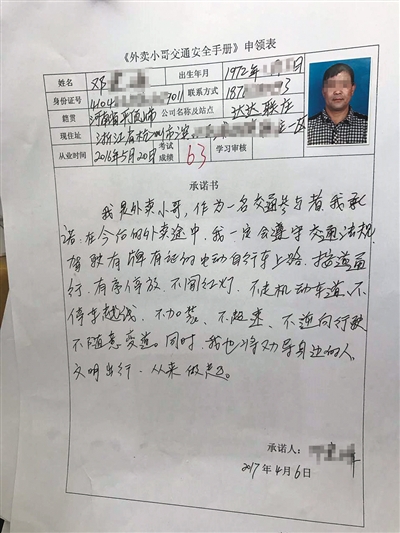 《外卖小哥交通安全手册》申领表
姓名 邓 出生年月 1972年 日
身份证号 4104 7011 联系方式 187 93
籍贯 河南省平顶山市 公司名称及站点 达达联庄
现住址 浙江省杭州市滨 一区
从业时间 2016年5月20日 考试成绩 63 学习审核
承诺书
我是外卖小哥,作为一名交通参与者,我承
诺:在今后的外卖途中,我一定会遵守交通法规,
驾驶有牌有证的电动自行车上路,按道通
行、有序停放、不闯红灯、不走机动车道、不
停车越线、不加装、不超速、不逆向行驶
不随意变道。同时,我也将劝导身边的人
文明出行,从来做起。
承诺人:
2017年4月6日